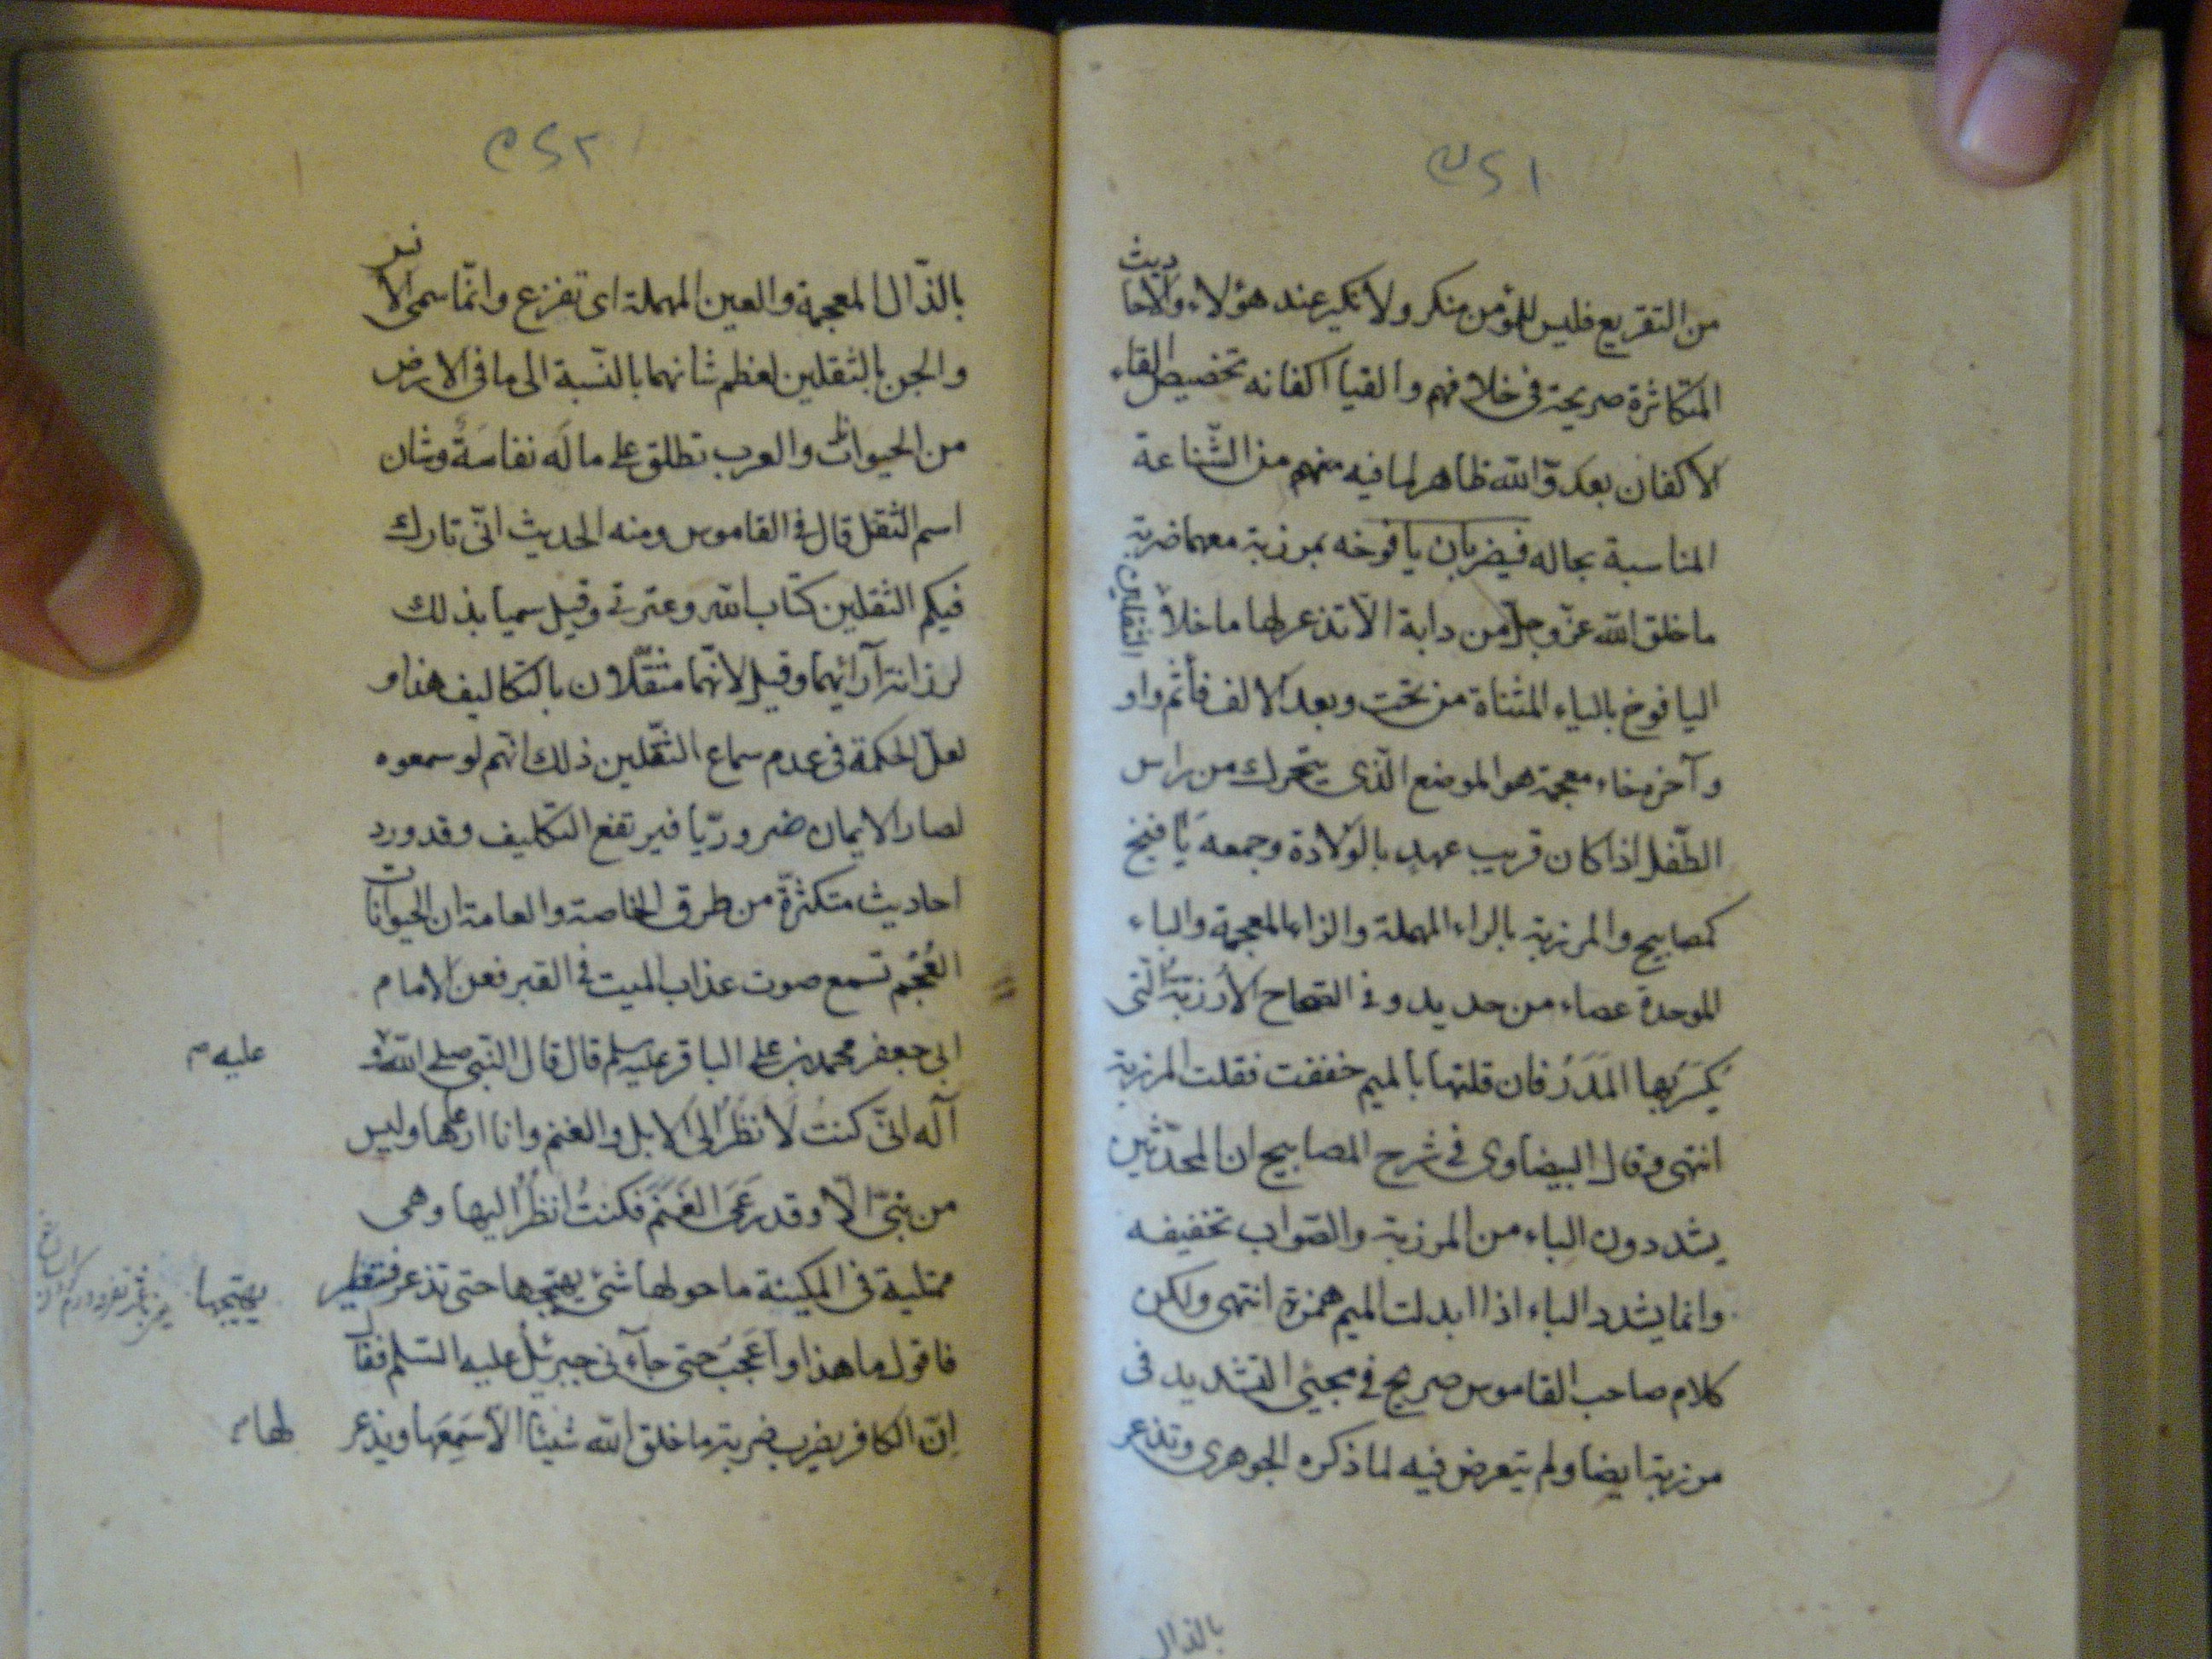 ۳۵۱
من التقريع فليس للمؤمن منكر ولا نكير عند هؤلاء والاحاديث
المتكاثرة صريحة فى خلافهم والقيا اكفانه تخصيص القاء
الاكفان بعدوّ الله ظاهر لما فيه منهم من الشّناعة
المناسبة بحاله فيضربان يا فوخه بمرزبة معهما ضربة
ما خلق الله عزّ وجلّ من دابة الّا تذعر لها ما خلا الثقلين
اليا فوخ بالياء المثناة من تحت وبعد الالف فاً ثم واو
وآخره خاء معجمة هو الموضع الّذى يتحرك من راس
الطّفل اذا كان قريب عهد بالولادة وجمعه يَا فيخ
كمصابيح والمرزبة بالراء المهملة والزاء المعجمة والباء
الموحدة عصاء من حديد و فى الصّحاح الأرزبّة الّتى
يكسَر بها المَدَرُ فان قلتها بالميم خففت فقلت المرزبة
انتهى وقال البيضاوى فى شرح المصابيح ان المحدّثين
يشددون الباء من المرزبة والصّواب تخفيفه
وانما يشدد الباء اذا ابدلت الميم همزة انتهى ولكن
كلام صاحب القاموس صريح فى مجيئ التشديد فى
مرزبة ايضا ولم يتعرض فيه لما ذكره الجوهرى وتذعر
بالذال
۳۵۲
بالذّال المعجمة والعين المهملة اى تفزع وانّما سمى الانس
والجن بالثقلين لعظم شانهما بالنّسبة الى ما فى الارض
من الحيوانات والعرب تطلق على ما لَه نفاسَةٌ وشان
اسم الثقل قال فى القاموس ومنه الحديث انّى تارك
فيكم الثقلين كتاب الله وعترتى وقيل سميا بذلك
لرزانة آرائهما وقيل لانّهما مثقّلان بالتكاليف هذا و
لعلّ الحكمة فى عدم سماع الثّقلين ذلك انّهم لو سمعوه
لصار الايمان ضروريّا فيرتفع التكليف وقد ورد
احاديث متكثرة من طرق الخاصة والعامة ان الحيوانات
العُجْم تسمع صوت عذاب الميت فى القبر فعن الامام
ابى جعفر محمد بن على الباقر عليه سلم قال قال النّبى صلى الله و
عليه
آله انّى كنتُ لَأنظُرُ الى الابل والغنم وانا ارعاها وليس
من نبىّ الّا وقد رَعَى الغَنَم فكنتُ انظُرُ اليها وهى
ممتلية فى المكينة ما حولها شئ يهيّجها حتى تذعر فتطير
يهيّجها
فاقول ما هذا وَاَعجَبُ حتى جآءنى جبرئيلُ عليه السّلم فقال
اِنّ الكافر يضرب ضربة ما خلق الله شيئًا الّا سَمِعَها ويذعر
لها